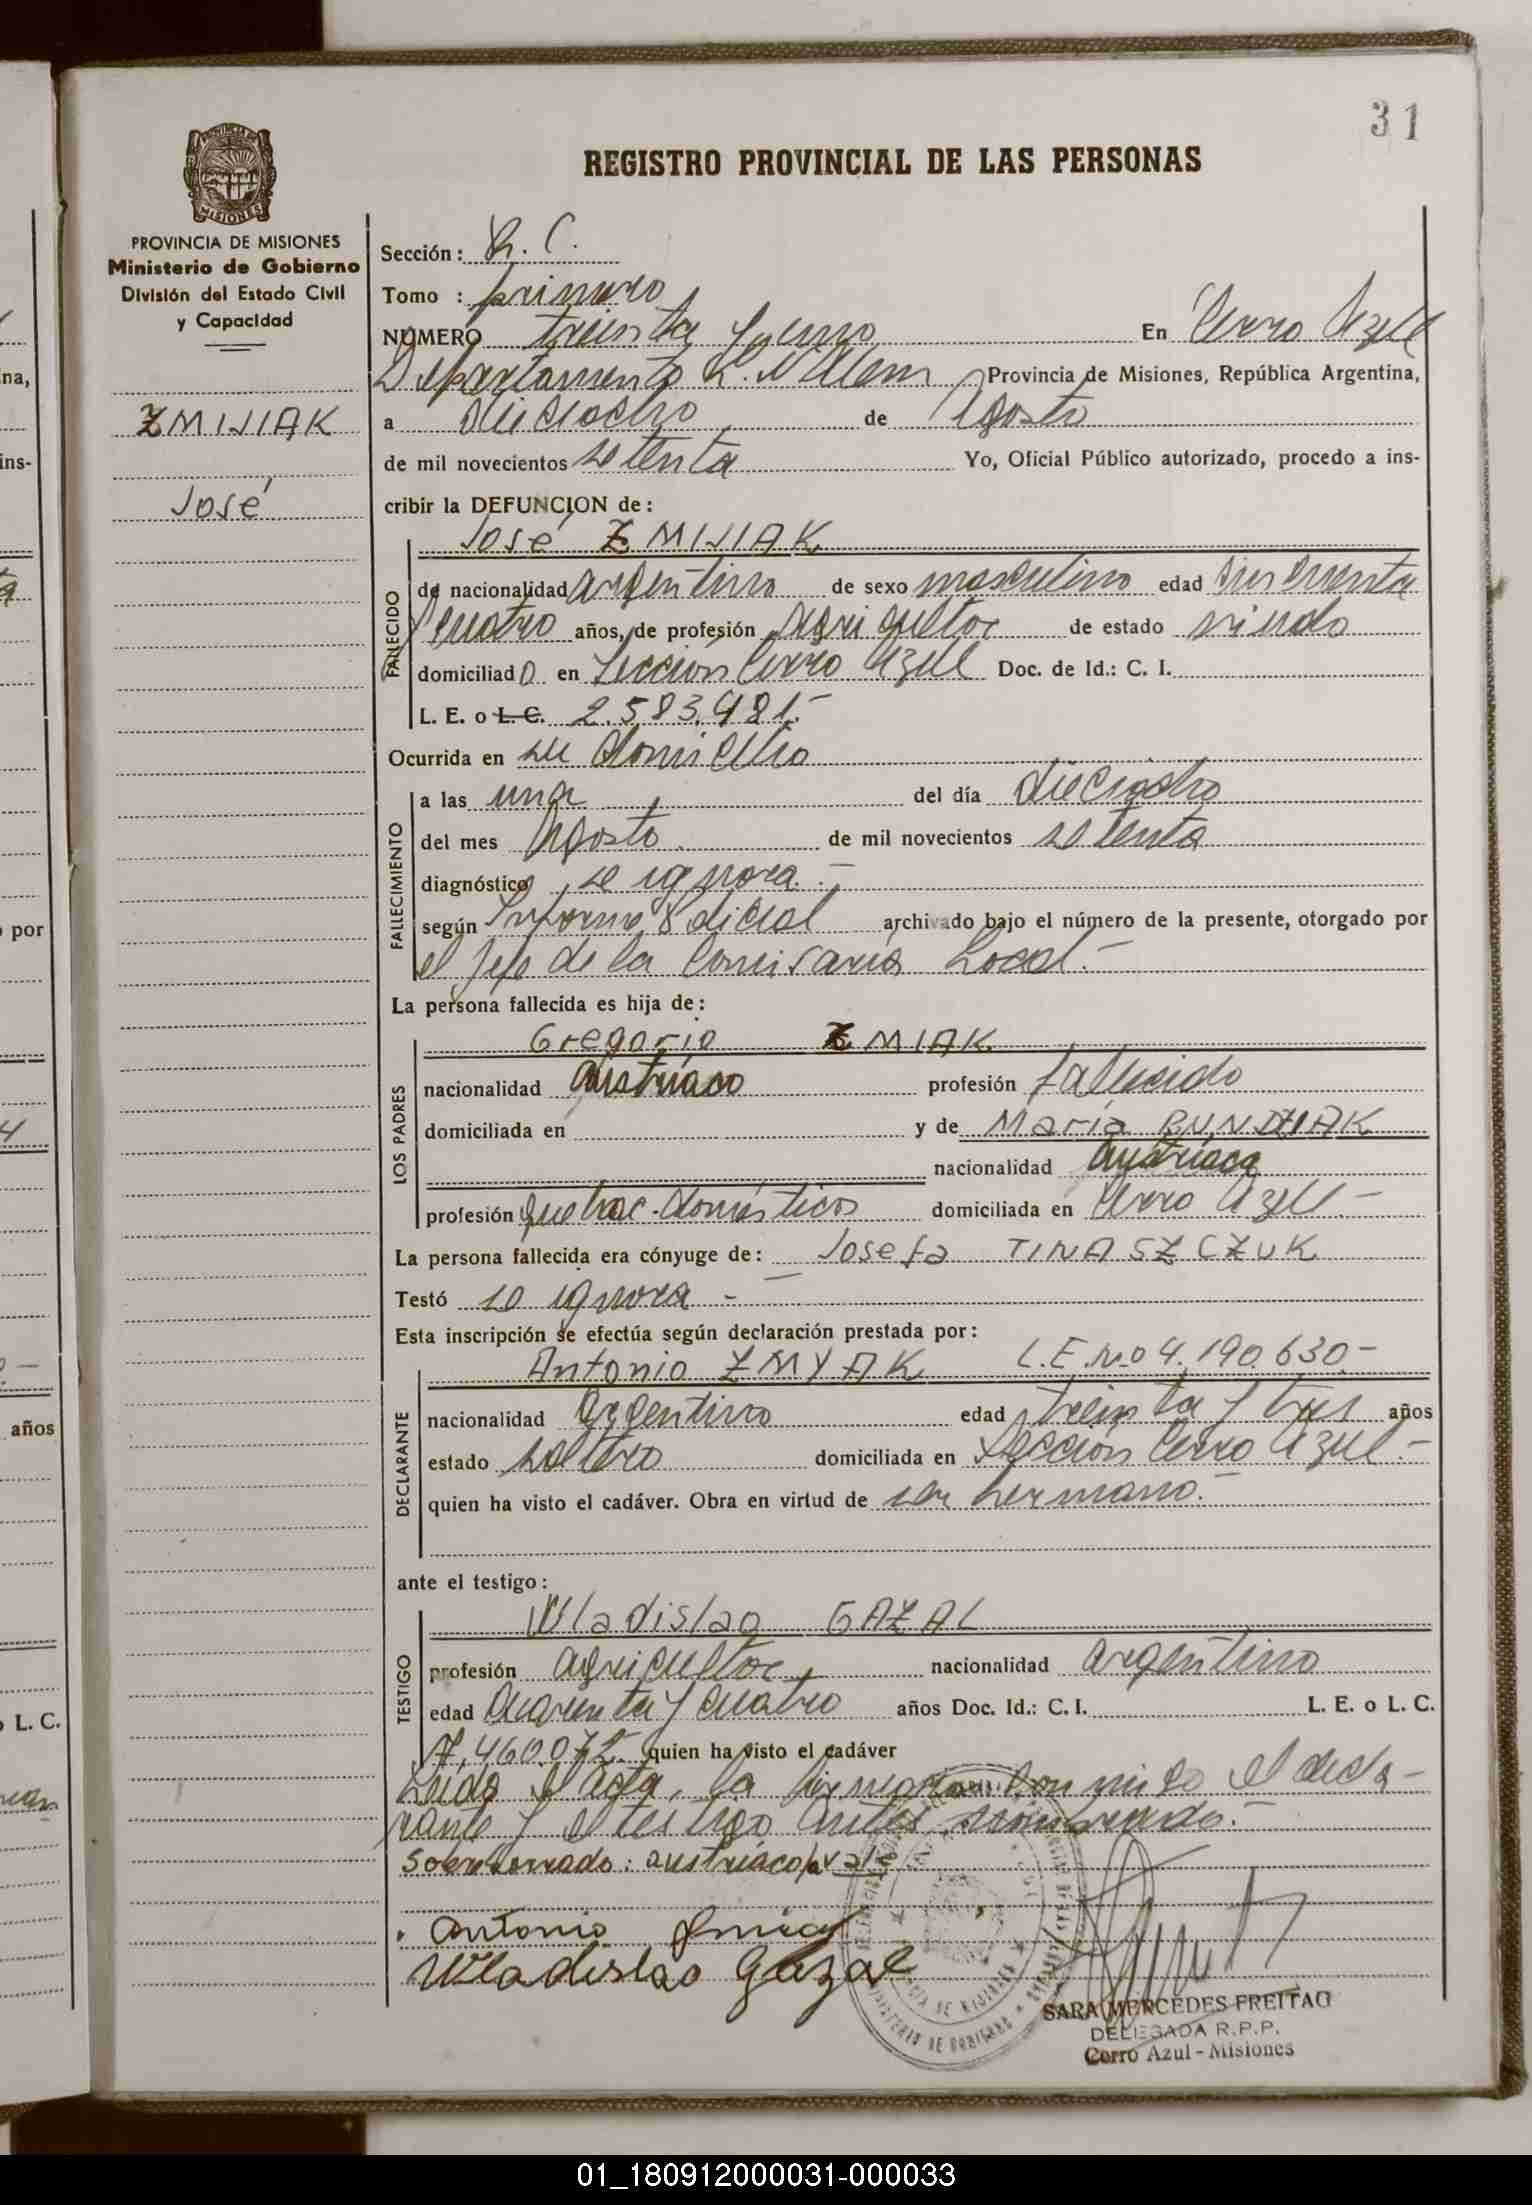 31
REGISTRO PROVINCIAL DE LAS PERSONAS
PROVINCIA DE MISIONES
Ministerio de Gobierno
División del Estado Civil
y Capacidad
ZMIJIAK
José
Sección: R. C.
Tomo : primero
NUMERO treinta y uno En Cerro Azul
Departamento L. N Alem Provincia de Misiones, República Argentina,
a dieciocho de Agosto
de mil novecientos setenta Yo, Oficial Público autorizado, procedo a ins-
cribir la DEFUNCION de:
José ZMIJIAK
FALLECIDO
de nacionalidad argentino de sexo masculino edad cincuenta
y cuatro años, de profesión agricultor de estado viudo
domiciliado en Sección Cerro Azul Doc. de Id.: C. I.
L. E. o L. C. 2.583.481.-
Ocurrida en su domicilio
FALLECIMIENTO
a las una del día dieciocho
del mes Agosto de mil novecientos setenta
diagnóstico se ignora.-
según Informe archivado bajo el número de la presente, otorgado por
el Jefe de la Comisaría Local.-
La persona fallecida es hija de:
LOS PADRES
Gregorio ZMIAK
nacionalidad austríaco profesión fallecido
domiciliada en y de María BUNDZIAK
nacionalidad austríaca
profesión quehac. domésticos domiciliada en Cerro Azul.-
La persona fallecida era cónyuge de: Josefa TINASZCZUK
Testó se ignora -
Esta inscripción se efectúa según declaración prestada por:
DECLARANTE
Antonio ZMYAK L.E.No 4.190.630-
nacionalidad argentino edad treinta y tres años
estado soltero domiciliada en Sección Cerro Azul.-
quien ha visto el cadáver. Obra en virtud de ser hermano.-
ante el testigo:
TESTIGO
Wladislao GAZAL
profesión agricultor nacionalidad argentino
edad cuarenta y cuatro años Doc. Id.: C. I. L. E. o L. C.
7.460.072- quien ha visto el cadáver
Leída el acta, la firman conmigo el decla-
rante y el testigo antes nombrado.-
Sobreborrado: austríaco/a vale
Antonio
Wladislao Gazal
SARA MERCEDES FREITAG
DELEGADA R.P.P.
Cerro Azul - Misiones
01_180912000031-000033